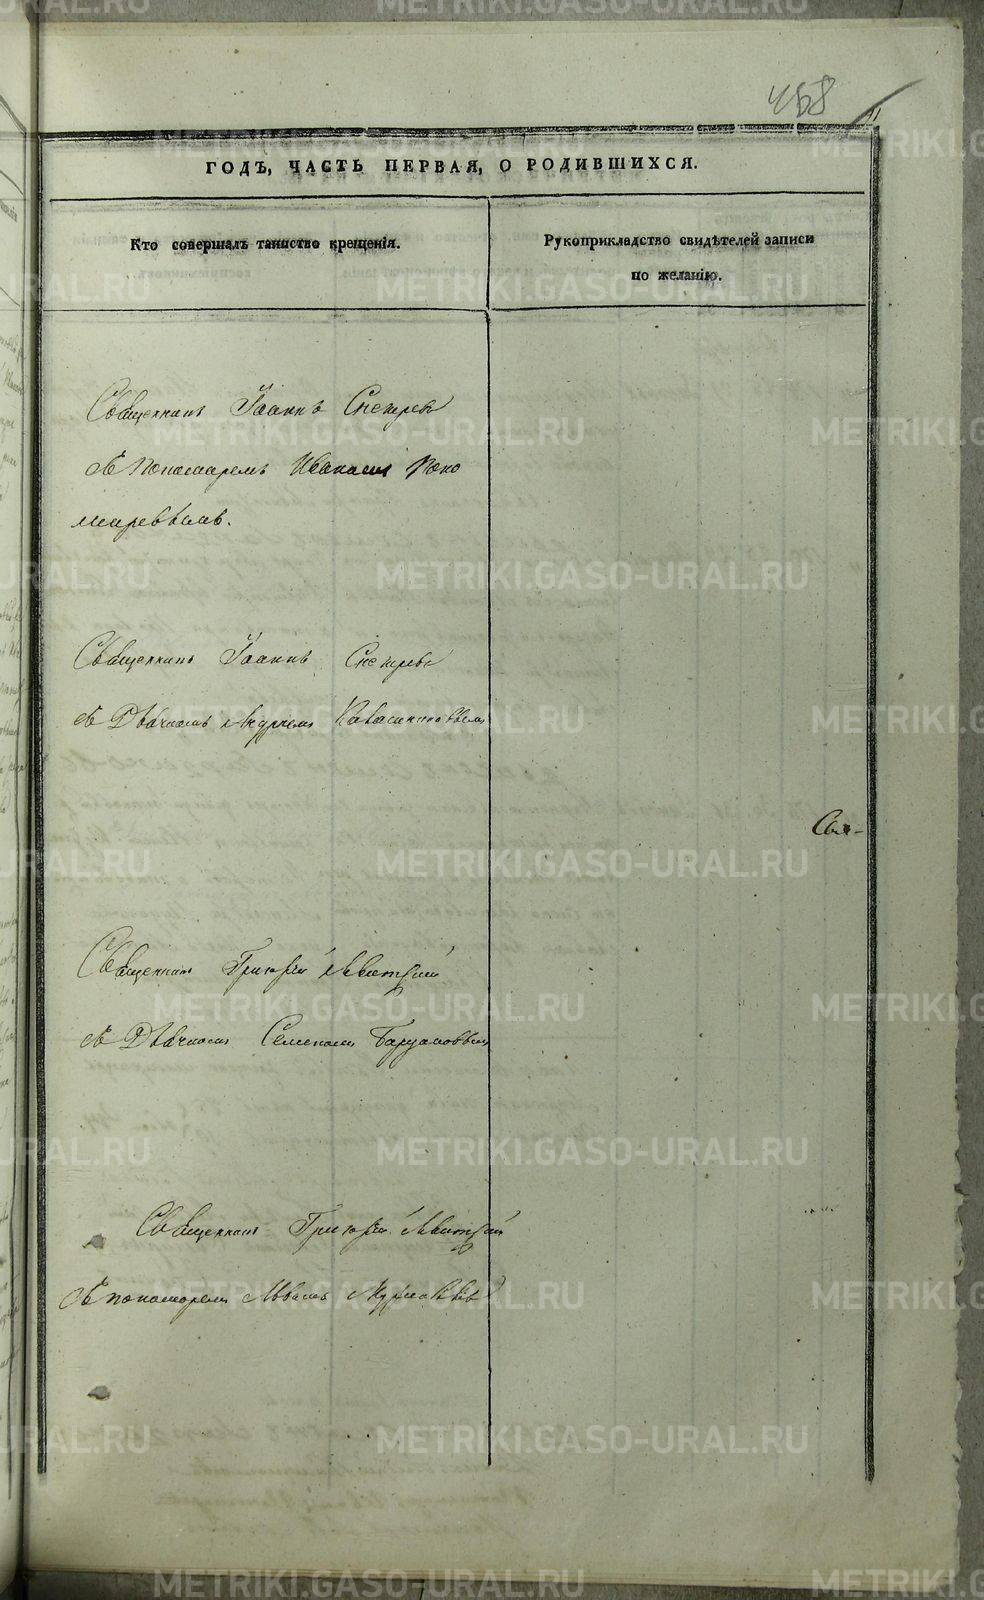 458
11
ГОДЪ, ЧАСТЬ ПЕРВАЯ, О РОДИВШИХСЯ.
Кто совершалъ таинство крещенія.
Рукоприкладство свидѣтелей записи
по желанію.
Священникъ Іоаннъ
съ Пономаремъ Иваномъ Поно
маревымъ.
Священникъ Іоаннъ
съ Дьячкомъ Андреем
Свя-
Священникъ Григорій Левитскій
съ Дьячкомъ Семеномъ
Священникъ Григорій Левитскій
съ пономаремъ Львомъ
METRIKI.GASO-URAL.RU